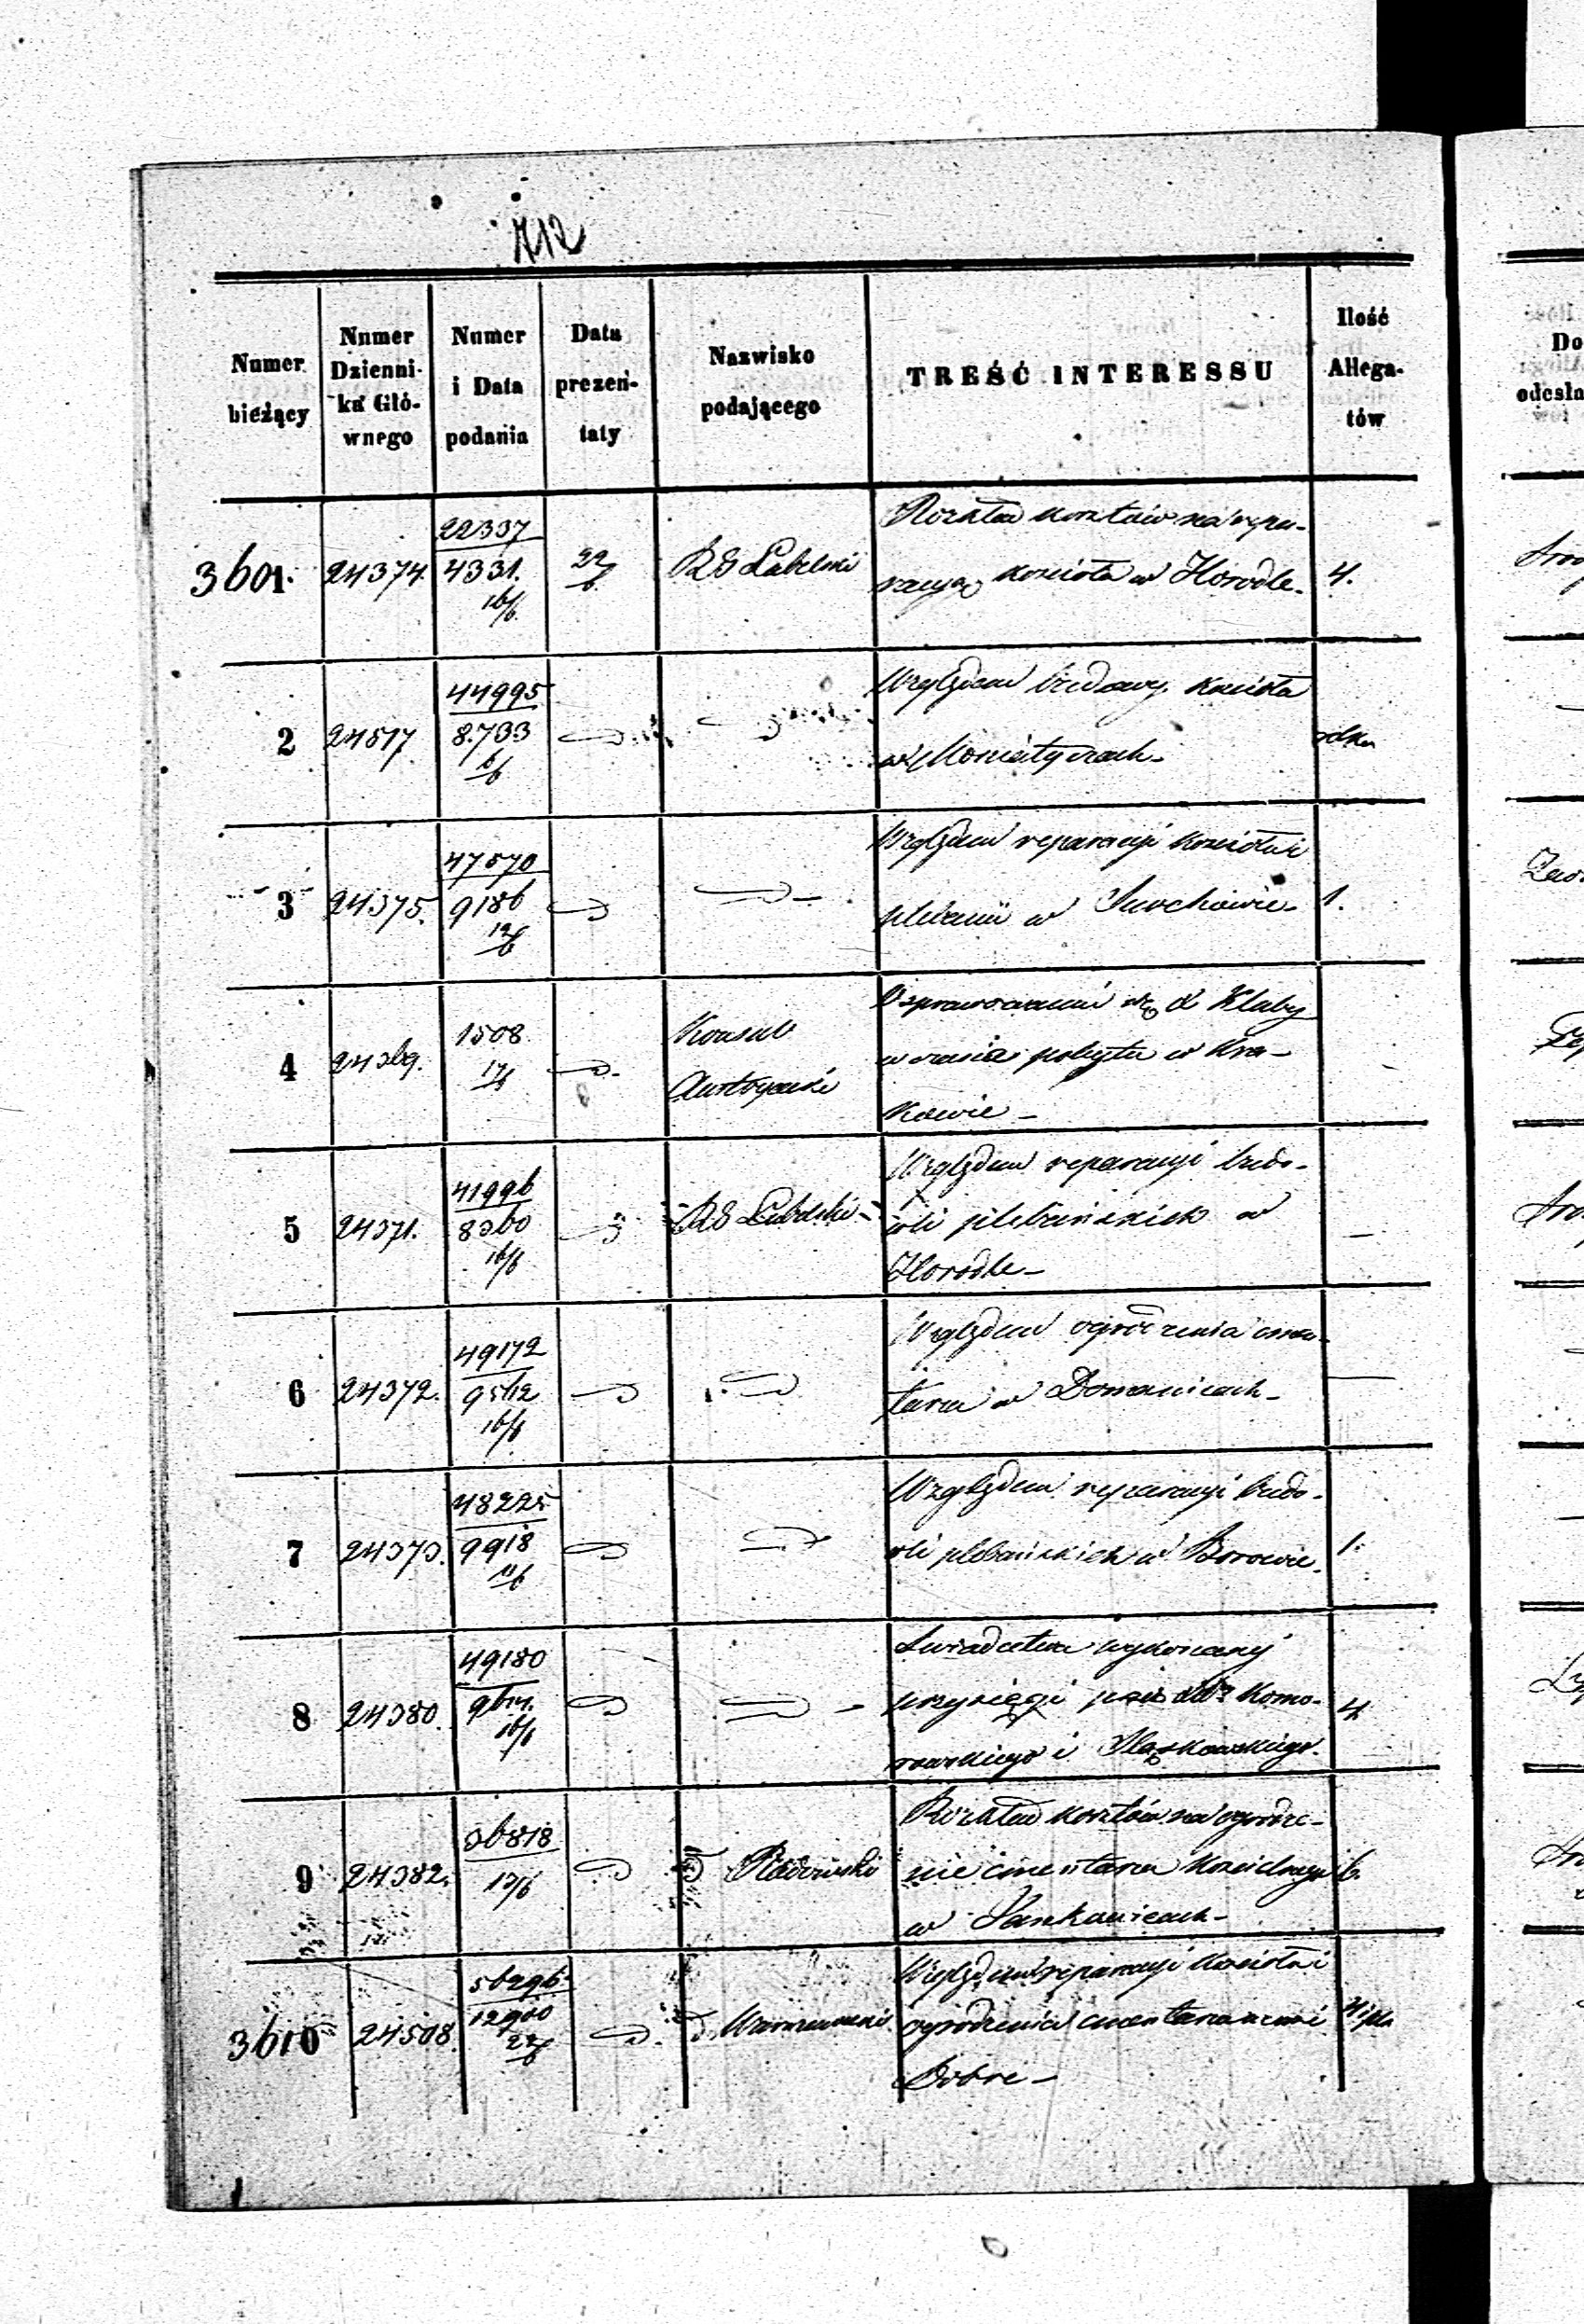 712
Numer bieżący
Numer Dziennika Głównego
Numer i Data podania
Data prezentaty
Nazwisko podającego
TREŚĆ INTERESSU
Ilość Allegatów
3601. 24374. 22337 4331. 16/6. 22/6. RG Lubelski Rozkład kosztów na repa-
racyą kościoła w Horodle. 4.
2 24517. 44995 8733 6/6 Względem budowy kościoła
w Moniatyczach
3 24375. 47570 9186 12/6 Względem reparacyi kościoła i
plebanii w Surchowie 1.
4 1508 17/6 Konsul
Austryacki
O sprawowaniu się X Kluby
w czasie pobytu w Kra-
kowie
5 24371. 41996 8360 16/6 RG Lubelski Względem reparacyi budo-
wli plebańskich w
Horodle
6 24372. 49172 9562 16/6 Względem ogrodzenia cmen-
tarza w Domanicach
7 24373. 48225 9918 Względem reparacyi budo-
wli plebańskich w Borowie 1.
8 24380. 49180 16/6 Świadectwa wykonanej
przysięgi przez Komo-
rowskiego i 4
9 24382. 36818 13/6 Radomski Rozkład kosztów na ogrodze-
nie cmentarza kościelnego 6.
w
3610 24508. 56296 12900 22/6 Warszawski Względem reparacyi kościoła i
ogrodzenia cmentarza we wsi
Dobre